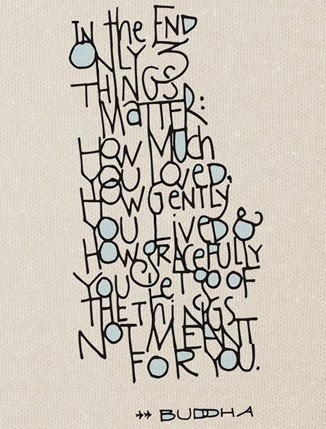 IN the END
ONLY 3
THINGS
MaTTER:
HOW Much
YOU LOVED,
HOW Gently
YOU LiVED &
HOW GRACEFULLY
YOU Let GO OF
THE THiNGS
NOT MEANT
FOR YOU.
→→ BUDDHA